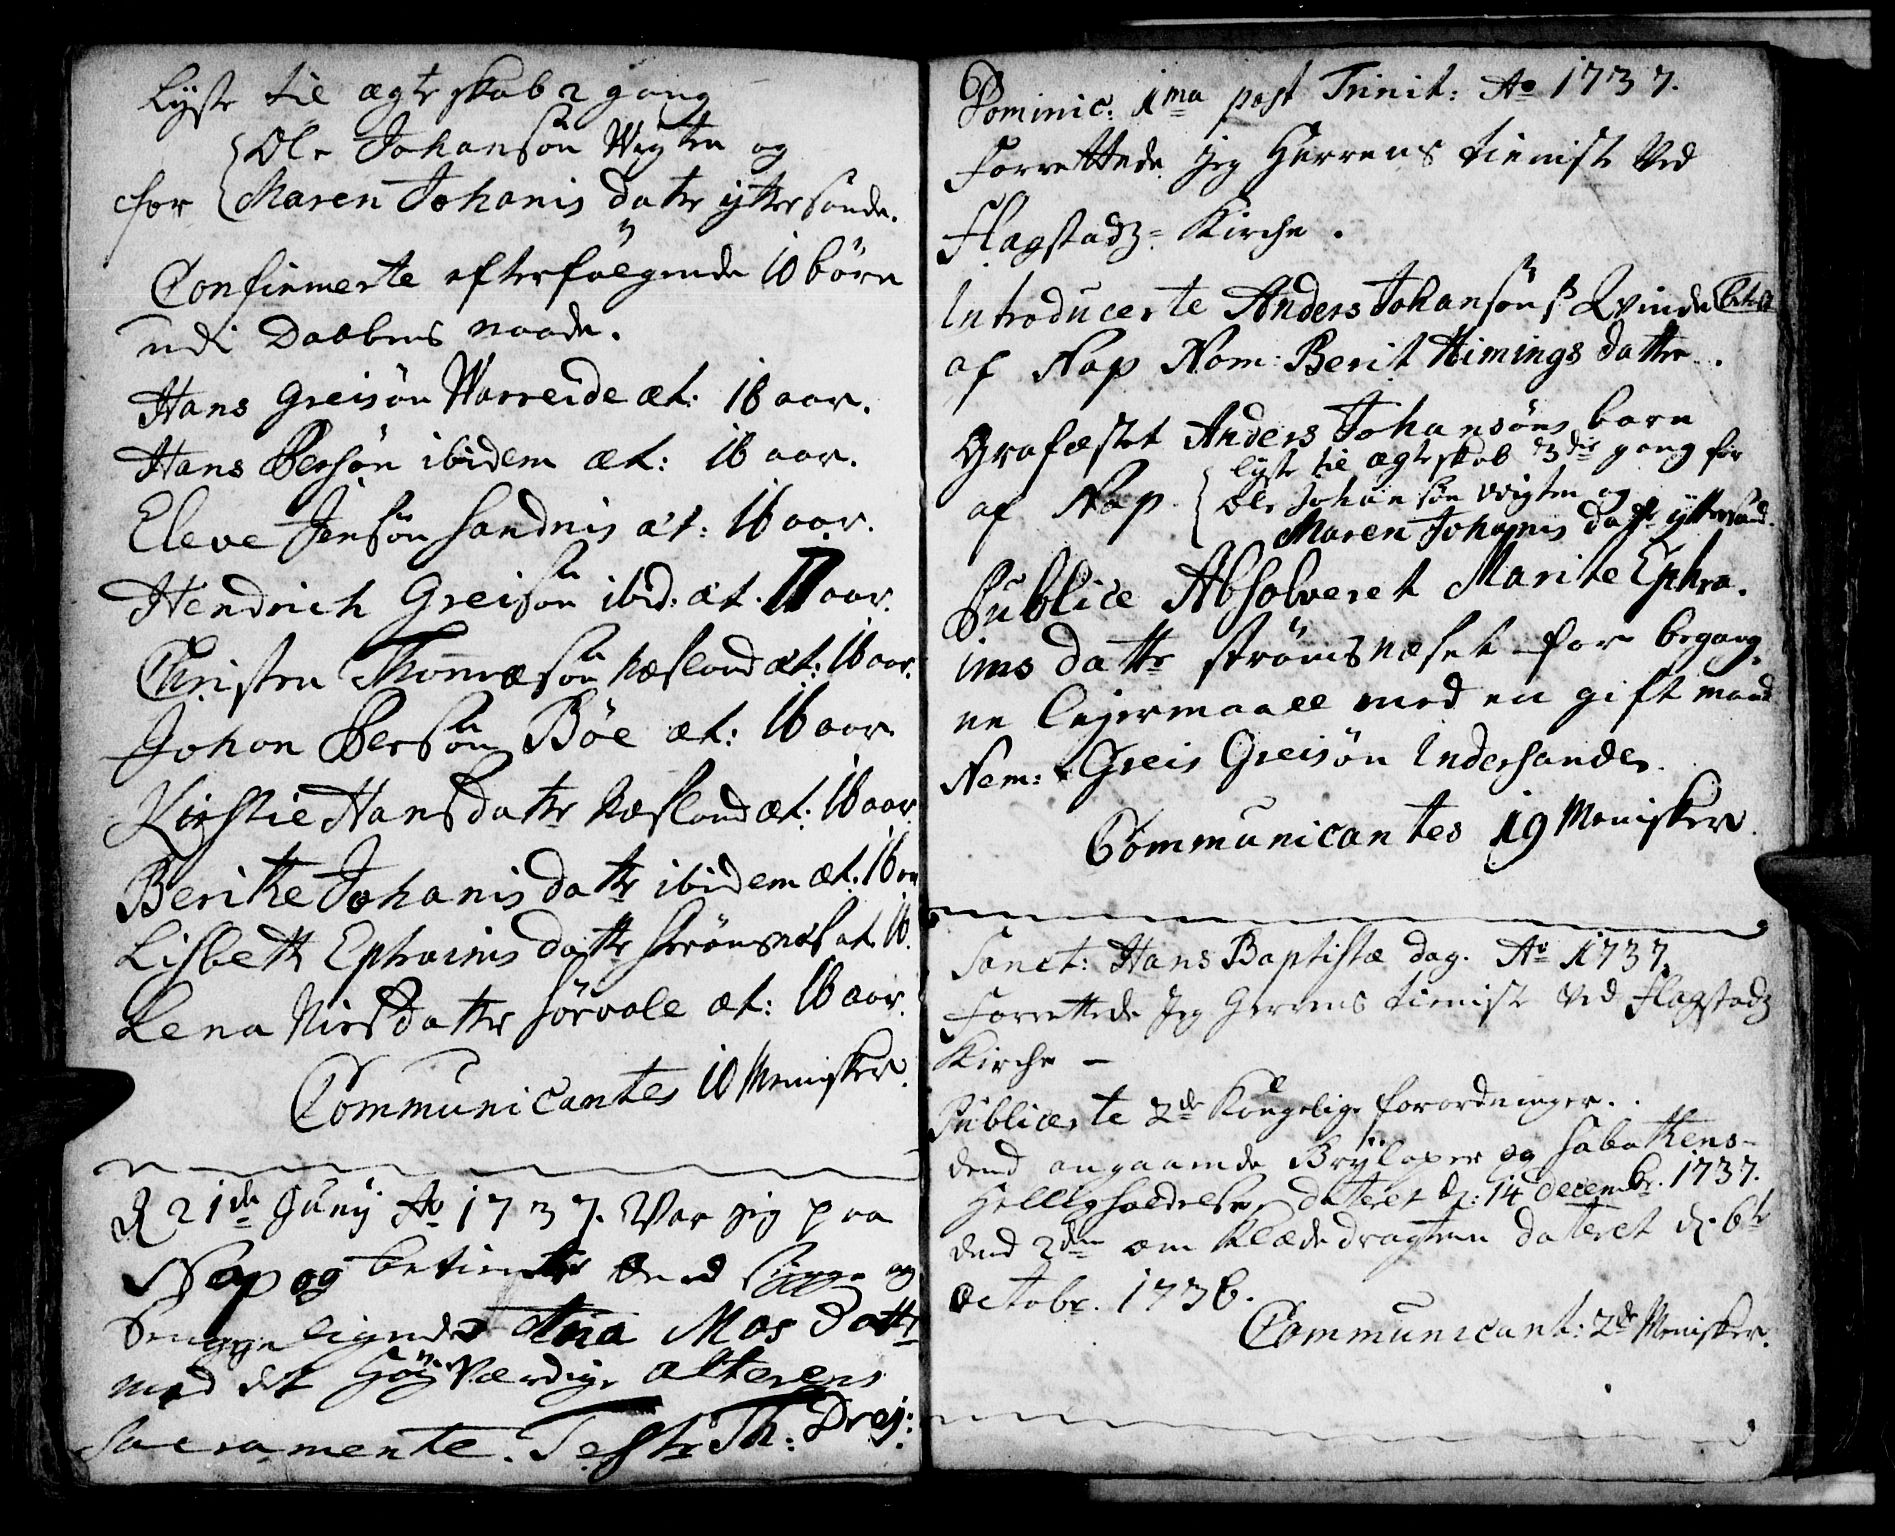 Lyste til ægteskab 2 gang
Ole Johansøn Wigten og
for Maren Johanis datter yttersande.
Confirmerte efterfølgende 10 børn
udi Daabens naade.
Hans Greisøn Warreide æt: 16 aar.
Hans Persøn ibidem æt: 16 aar.
Eleve Jensøn Sandnis æt: 16 aar.
Hendrich Greisøn ibid: æt. 17 aar.
Christen Thommæsøn Næsland æt: 16 aar.
Johan Persøn Böe æt: 16 aar.
Kirstie Hansdatter Næsland æt: 16 aar.
Beritte Johanis datter ibidem æt. 16
Lisbeth Ephraims datter strömsnæs æt 16.
Lena Nielsdatter Sörvale æt: 16 aar.
Communicantes 10 Menisker.
D 21de Junij Ao 1737. Var jeg paa
Nap og betiente dend siuge og
Senge liggende Ana Mas datter
med det Høyværdige alterens
Sacramente. Teste Th: Drej:
Dominic: 1ma post Trinit: Ao 1737.
Forrettede jeg Herrens tieniste ved
Flagstadz=Kirche.
Introducerte Anders Johansøns Qvinde
af Nap Nom: Berit Himings datter.
Grafæstet Anders Johansøns barn
af Nap.
lyste til ægteskab 3die gang for
Ole Johansøn wigten og
Maren Johanis datter yttersand.
Publice Absolveret Marite Ephra.
ims datter strömsnæset for begang,
ne Lejermaall med en gift mand
Nem: Greis Greisøn Indersandes.
Communicantes 19 Menisker.
Sanct: Hans Baptistæ dag. Ao 1737.
Forrettede jeg Herrens tieniste ved Flagstadz
Kirche –
Publicerte 2de Kongelige forordninger.
dend angaaende Bryloper og Sabathens-
Helligholdelse, dateret d: 14 decembr. 1737.
dend 2den om Klædedragten dateret d. 6te
Octobr. 1736.
Communicant: 2de Menisker.